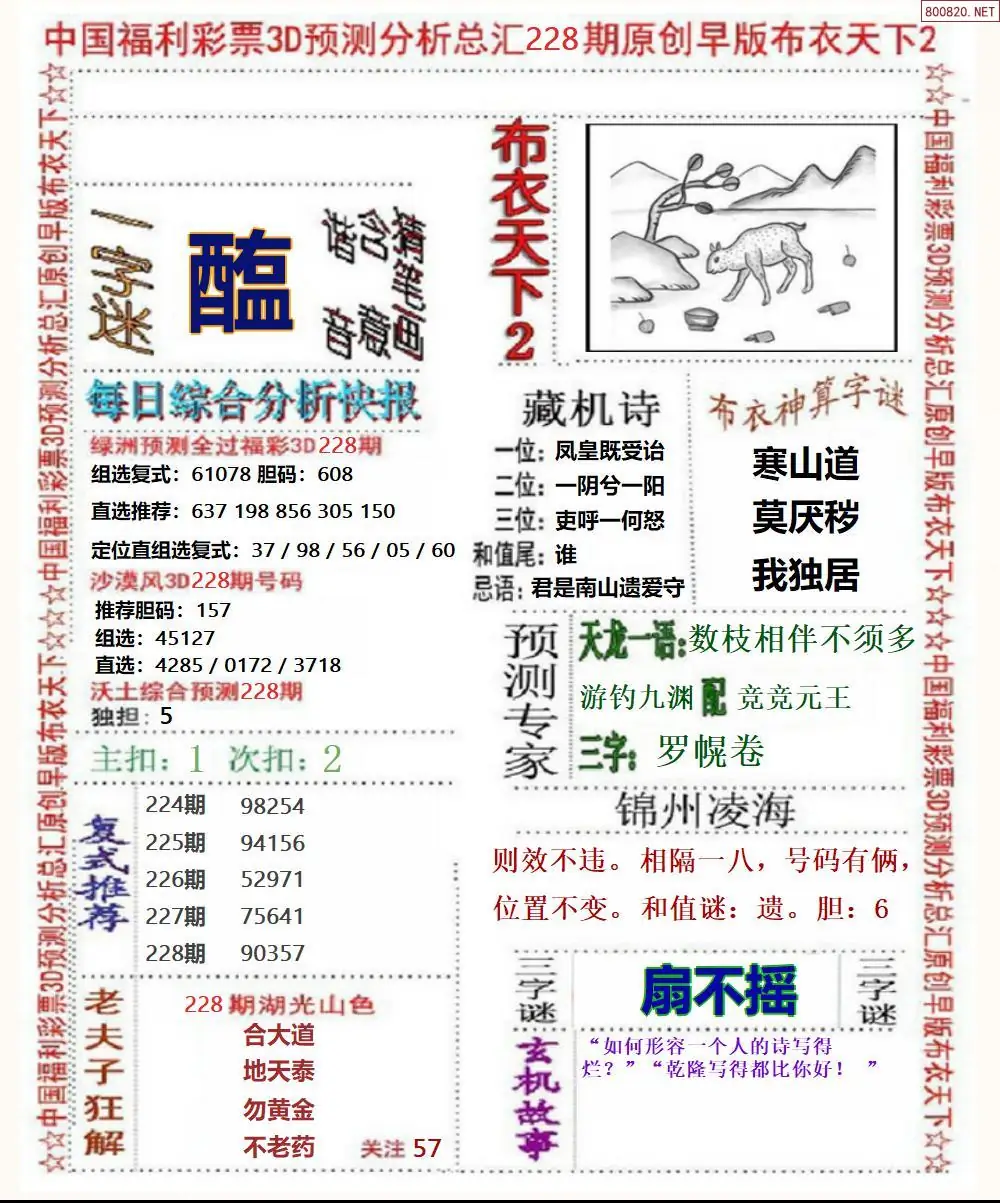 800820.NET
中国福利彩票3D预测分析总汇228期原创早版布衣天下2
☆☆中国福利彩票3D预测分析总汇原创早版布衣天下☆☆中国福利彩票3D预测分析总汇原创早版布衣天下☆☆
一字迷
醖
猜笔画
含意
谐音
每日综合分析快报
绿洲预测全过福彩3D228期
组选复式：61078 胆码：608
直选推荐：637 198 856 305 150
定位直组选复式：37 / 98 / 56 / 05 / 60
沙漠风3D228期号码
推荐胆码：157
组选：45127
直选：4285 / 0172 / 3718
沃土综合预测228期
独担：5
主扣：1 次扣：2
复式推荐
224期 98254
225期 94156
226期 52971
227期 75641
228期 90357
老夫子狂解
228期湖光山色
合大道
地天泰
勿黄金
不老药 关注 57
布衣天下2
藏机诗
一位：凤皇既受诒
二位：一阴兮一阳
三位：吏呼一何怒
和值尾：谁
忌语：君是南山遗爱守
布衣神算字谜
寒山道
莫厌秽
我独居
预测专家
天龙一语：数枝相伴不须多
游钓九渊 配 竞竞元王
三字：罗幌卷
锦州凌海
则效不违。相隔一八，号码有俩，
位置不变。和值谜：遗。胆：6
三字谜
扇不摇
三字谜
玄机故事
“如何形容一个人的诗写得
烂？”“乾隆写得都比你好！ ”
☆☆中国福利彩票3D预测分析总汇原创早版布衣天下☆☆中国福利彩票3D预测分析总汇原创早版布衣天下☆☆